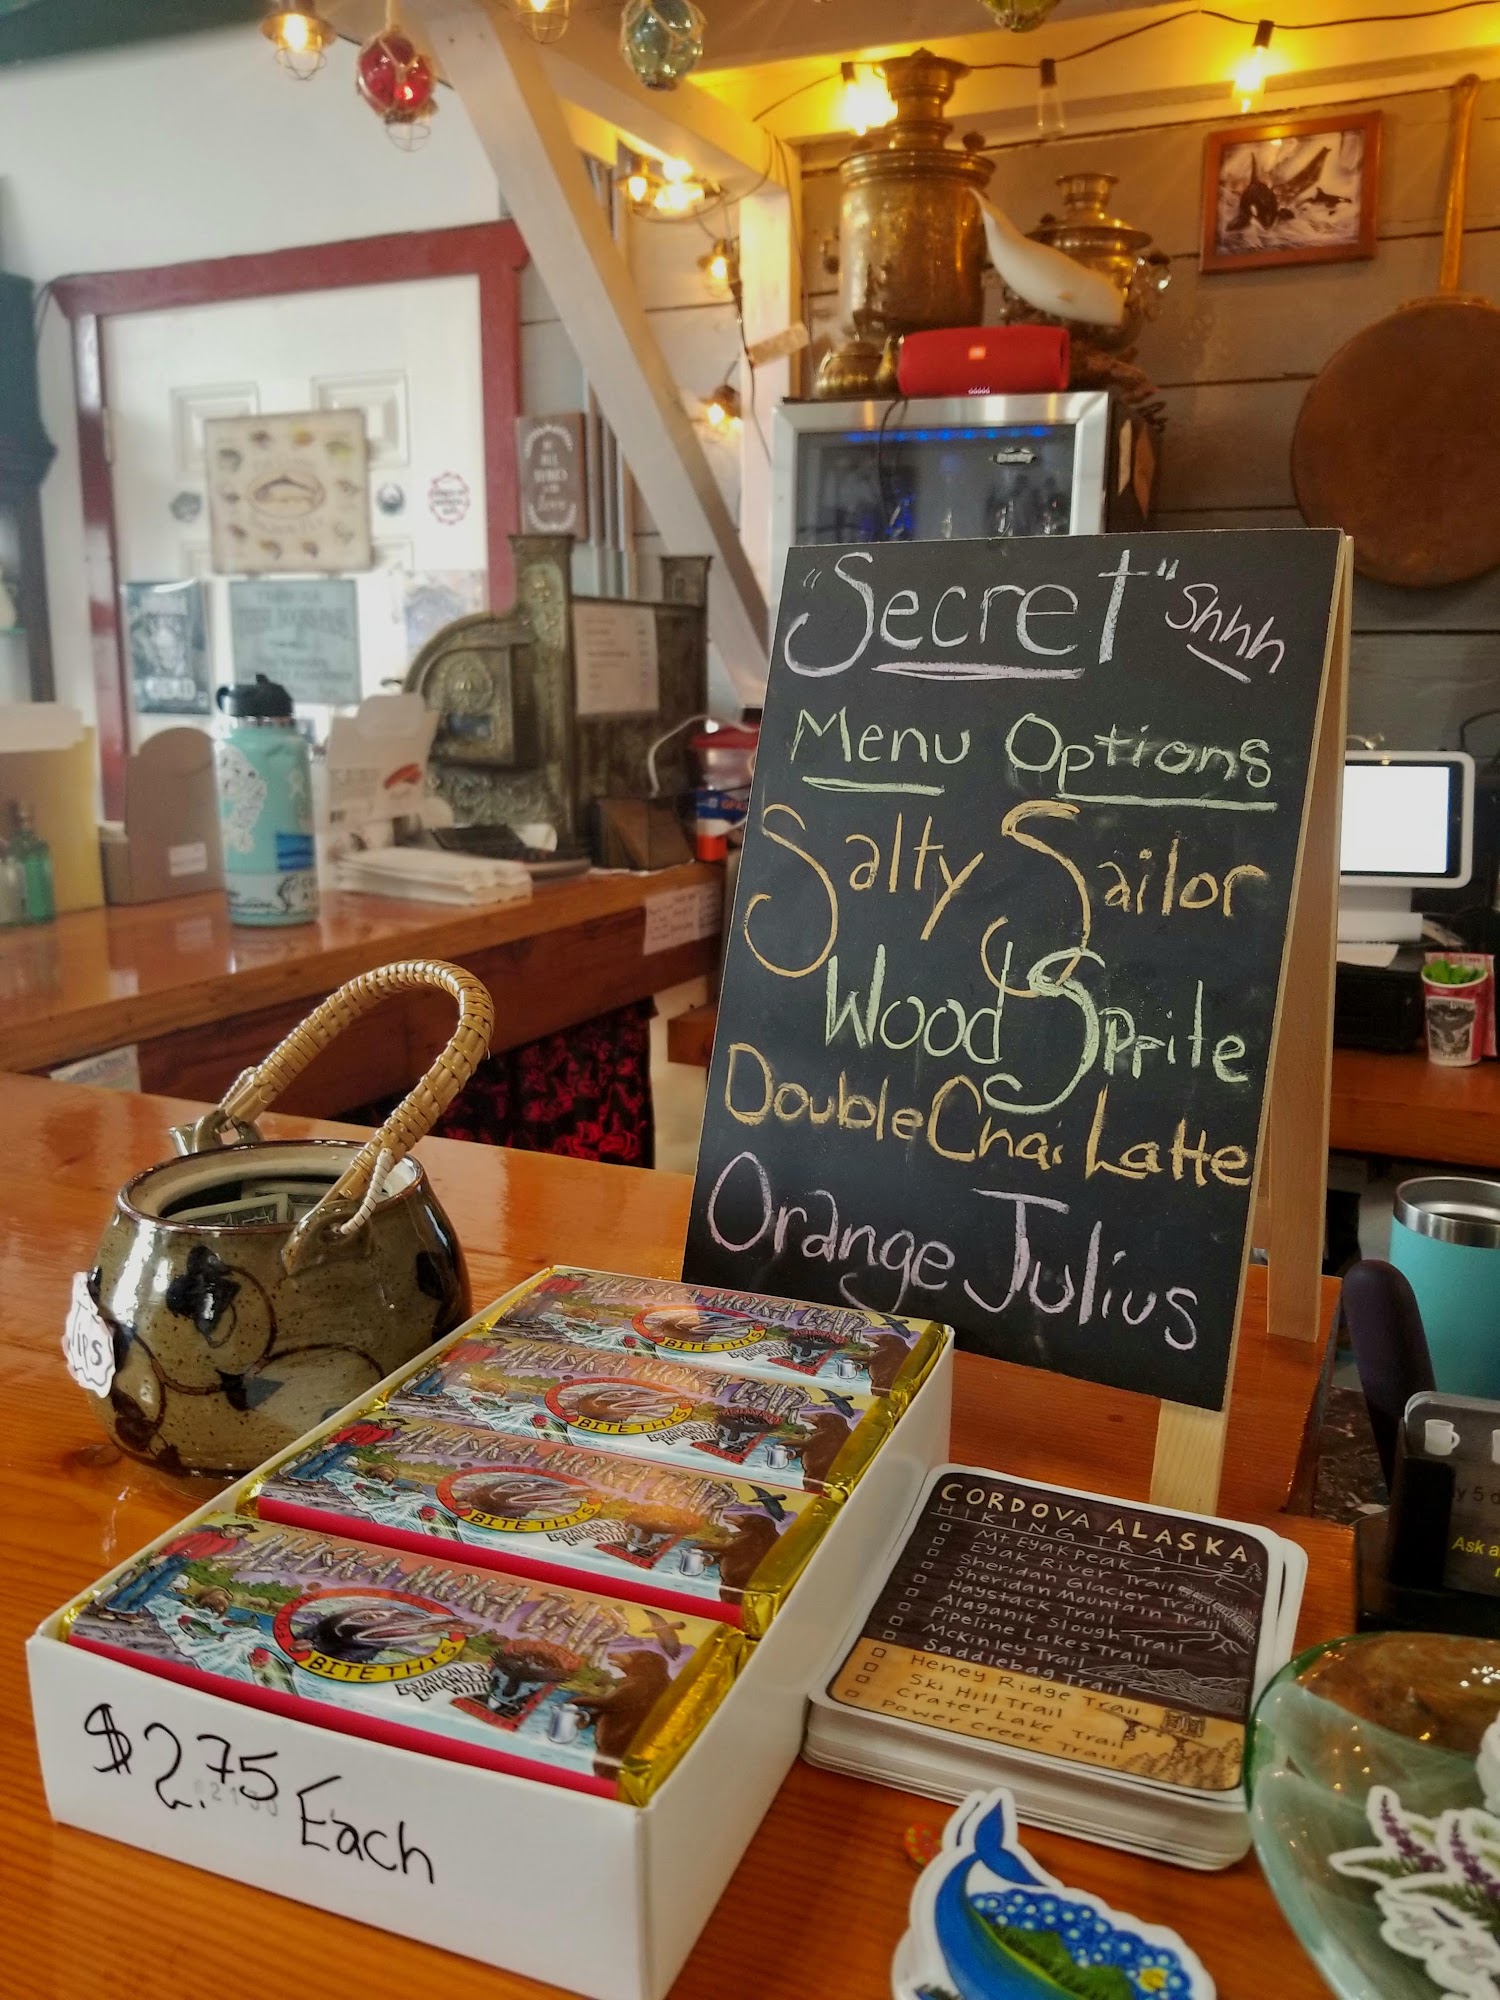 "Secret" Shhh
Menu Options
Salty Sailor
Wood Sprite
Double Chai Latte
Orange Julius
JBL
Tips
ALASKA MOKA BAR
BITE THIS
ALASKA MOKA BAR
BITE THIS
ALASKA MOKA BAR
BITE THIS
ALASKA MOKA BAR
BITE THIS
ECSTATICALLY
ENHANCED WITH
$2.75 Each
CORDOVA ALASKA
HIKING TRAILS
Mt. Eyak peak
Eyak River Trail
Sheridan Glacier Trail
Sheridan Mountain Trail
Haystack Trail
Alaganik Slough Trail
Pipeline Lakes Trail
McKinley Trail
Saddlebag Trail
Heney Ridge Trail
Ski Hill Trail
Crater Lake Trail
Power Creek Trail
Ask a